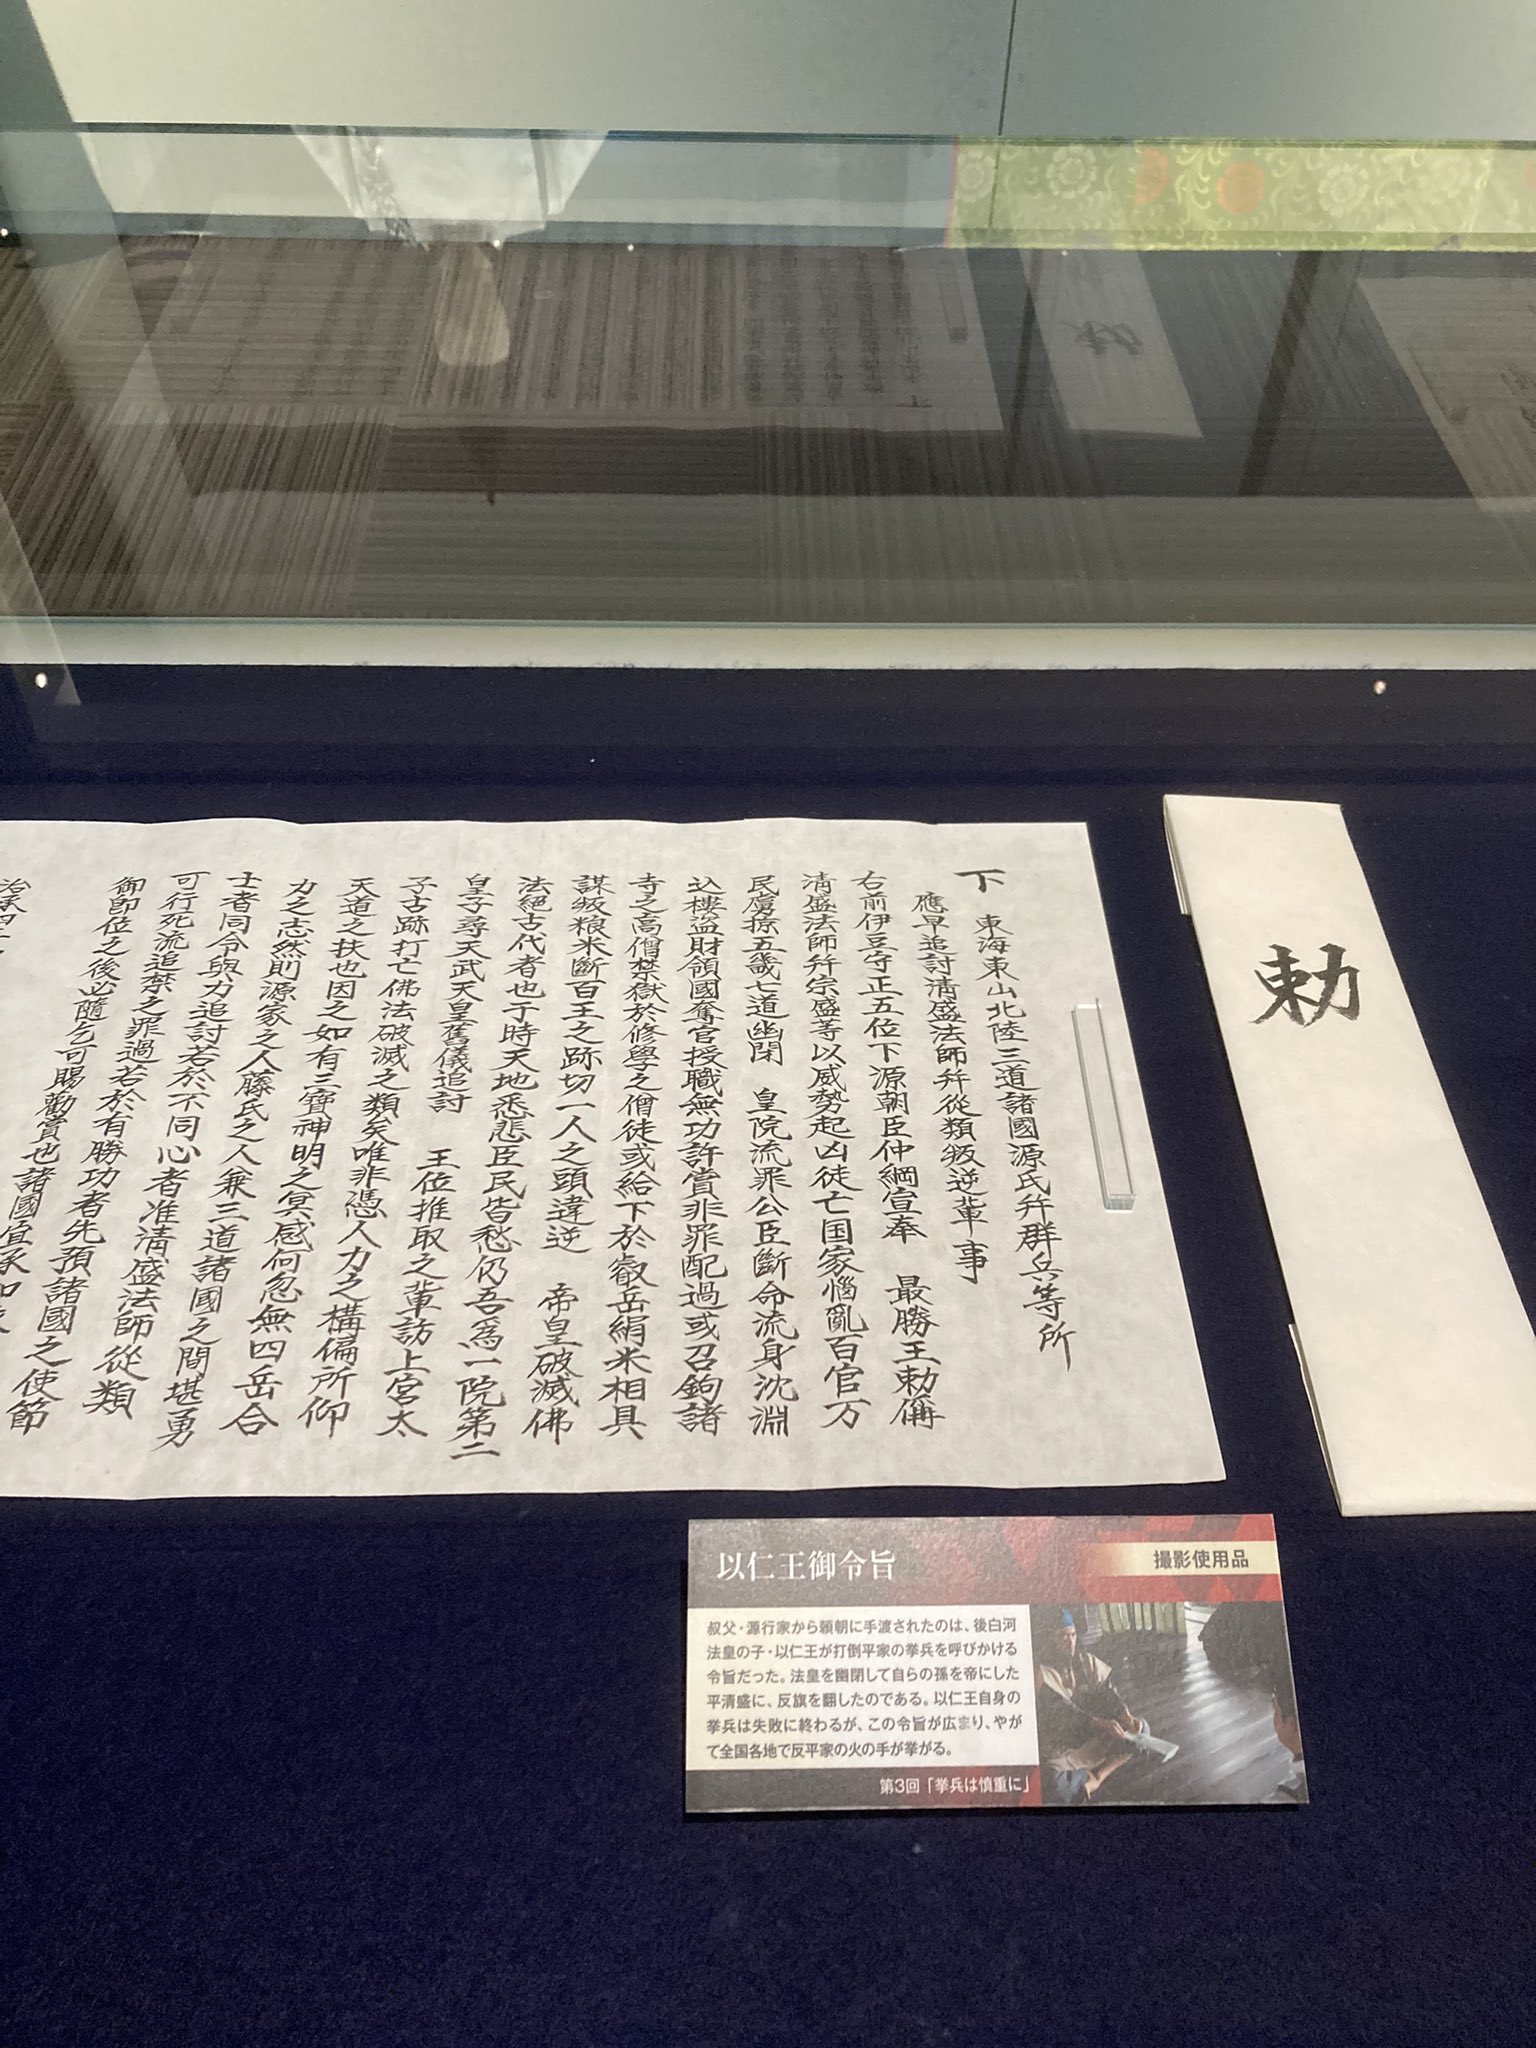 勅
下 東海東山北陸三道諸國源氏幷群兵等所
應早追討淸盛法師幷從類叛逆輩事
右前伊豆守正五位下源朝臣仲綱宣奉 最勝王勅偁
淸盛法師幷宗盛等以威勢起凶徒亡国家惱亂百官万
民虜掠五畿七道幽閉 皇院流罪公臣斷命流身沈淵
込樓盗財領國奪官授職無功許賞非罪配過或召鉤諸
寺之高僧禁獄於修學之僧徒或給下於叡岳絹米相具
謀叛粮米斷百王之跡切一人之頭違逆 帝皇破滅佛
法絕古代者也于時天地悉悲臣民皆愁仍吾爲一院第二
皇子尋天武天皇舊儀追討 王位推取之輩訪上宮太
子古跡打亡佛法破滅之類矣唯非憑人力之構偏所仰
天道之扶也因之如有三寶神明之冥感何忽無四岳合
力之志然則源家之人藤氏之人兼三道諸國之間堪勇
士者同令與力追討若於不同心者准淸盛法師從類
可行死流追禁之罪過若於有勝功者先預諸國之使節
御即位之後必隨乞可賜勸賞也諸國宜承知
治承四
以仁王御令旨
撮影使用品
叔父・源行家から頼朝に手渡されたのは、後白河
法皇の子・以仁王が打倒平家の挙兵を呼びかける
令旨だった。法皇を幽閉して自らの孫を帝にした
平清盛に、反旗を翻したのである。以仁王自身の
挙兵は失敗に終わるが、この令旨が広まり、やが
て全国各地で反平家の火の手が挙がる。
第3回「挙兵は慎重に」